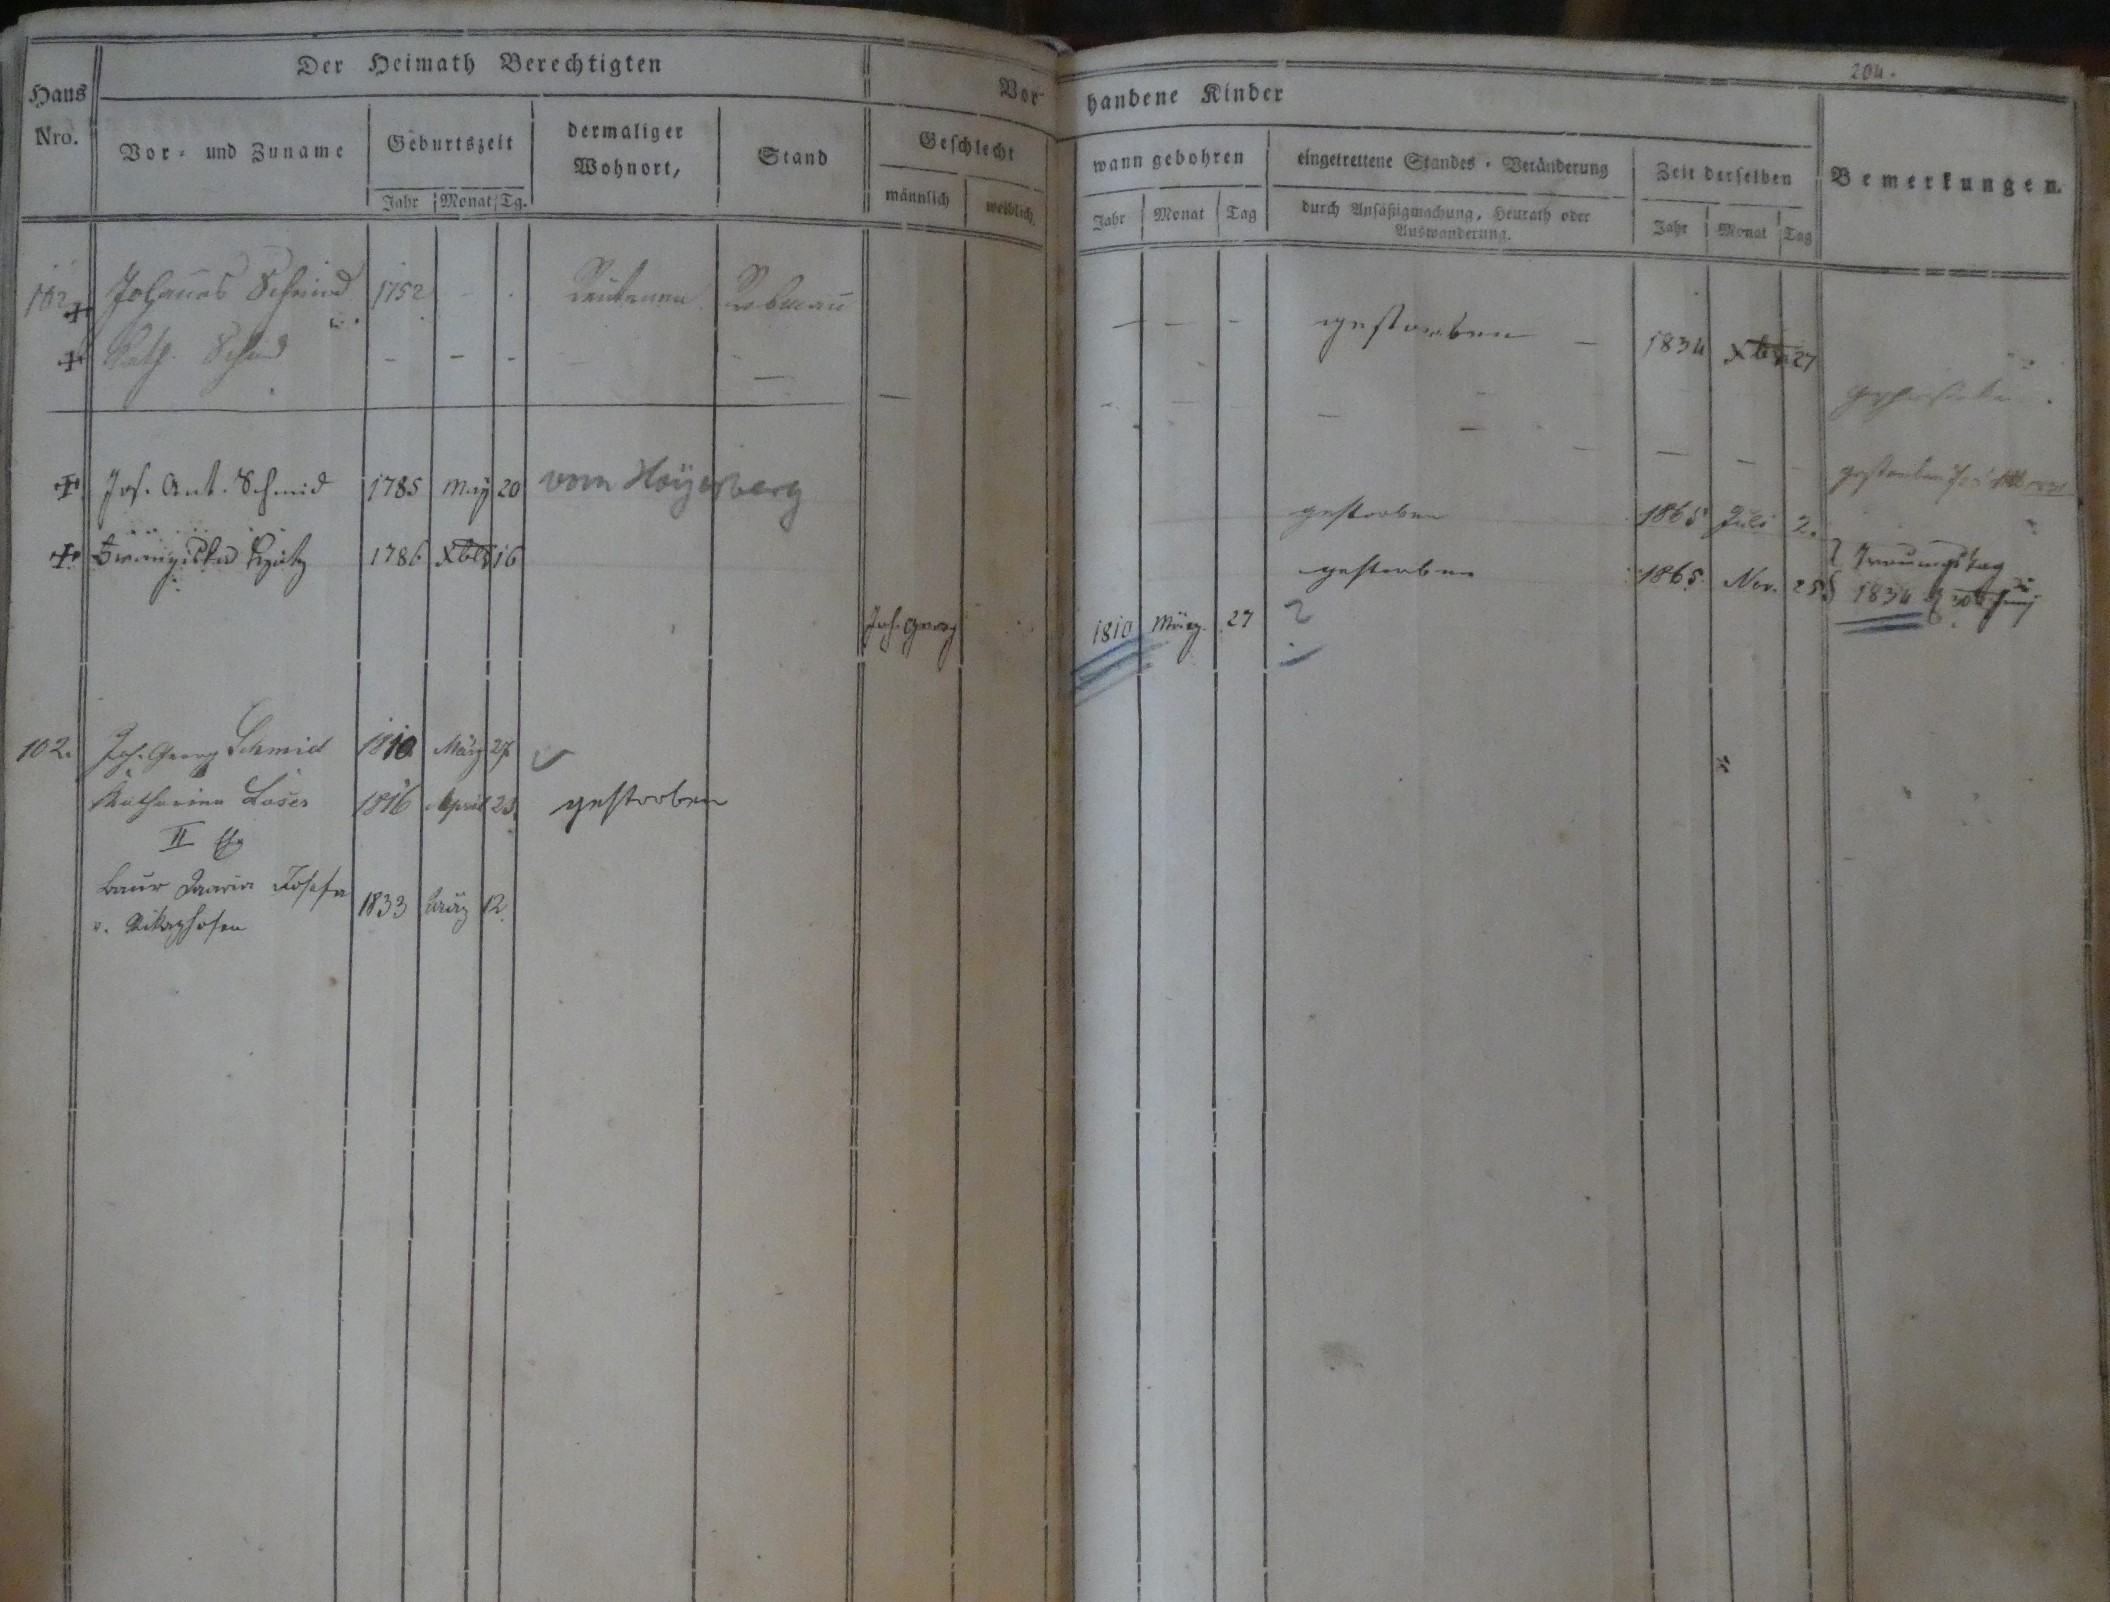 204.
Haus Nro.
Der Heimath Berechtigten
Vor- und Zuname
Geburtszeit
Jahr Monat Tg.
dermaliger Wohnort,
Stand
Vor-
handene Kinder
Geschlecht
männlich weiblich
wann gebohren
Jahr Monat Tag
eingetrettene Standes-Veränderung
durch Ansäßigmachung, Heurath oder
Auswanderung.
Zeit derselben
Jahr Monat Tag
Bemerkungen.
102 Johannes Schmid 1752 Reutenen Rebmann
gestorben 1834 Xber 27
Kath. Schmid
Jos. Ant. Schmid 1785 May 20 vom Hoyerberg
gestorben 1865 Juli 2.
gestorben
Franziska 1786 Xber 16
gestorben 1865 Nov. 25
Trauungstag
1834 30 Juny
Joh. Georg 1810 März 27 ?
102. Joh. Georg Schmid 1810 März 27
Katharina Loser 1816 April 23 gestorben
II Ehe
Baur Maria Josefa
1833 März 12.